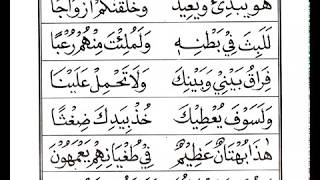 هُوَ يُبْدِئُ وَيُعِيدُ وَخَلَقْنٰكُمْ اَزْوَاجًا
لَلَبِثَ فِيْ بَطْنِهٖ وَلَمُلِئْتَ مِنْهُمْ رُعْبًا
فِرَاقُ بَيْنِيْ وَبَيْنِكَ وَلَا تَحْمِلْ عَلَيْنَا
وَلَسَوْفَ يُعْطِيْكَ خُذْ بِيَدِكَ ضِغْثًا
هٰذَا بُهْتَانٌ عَظِيْمٌ فِيْ طُغْيَانِهِمْ يَعْمَهُوْنَ